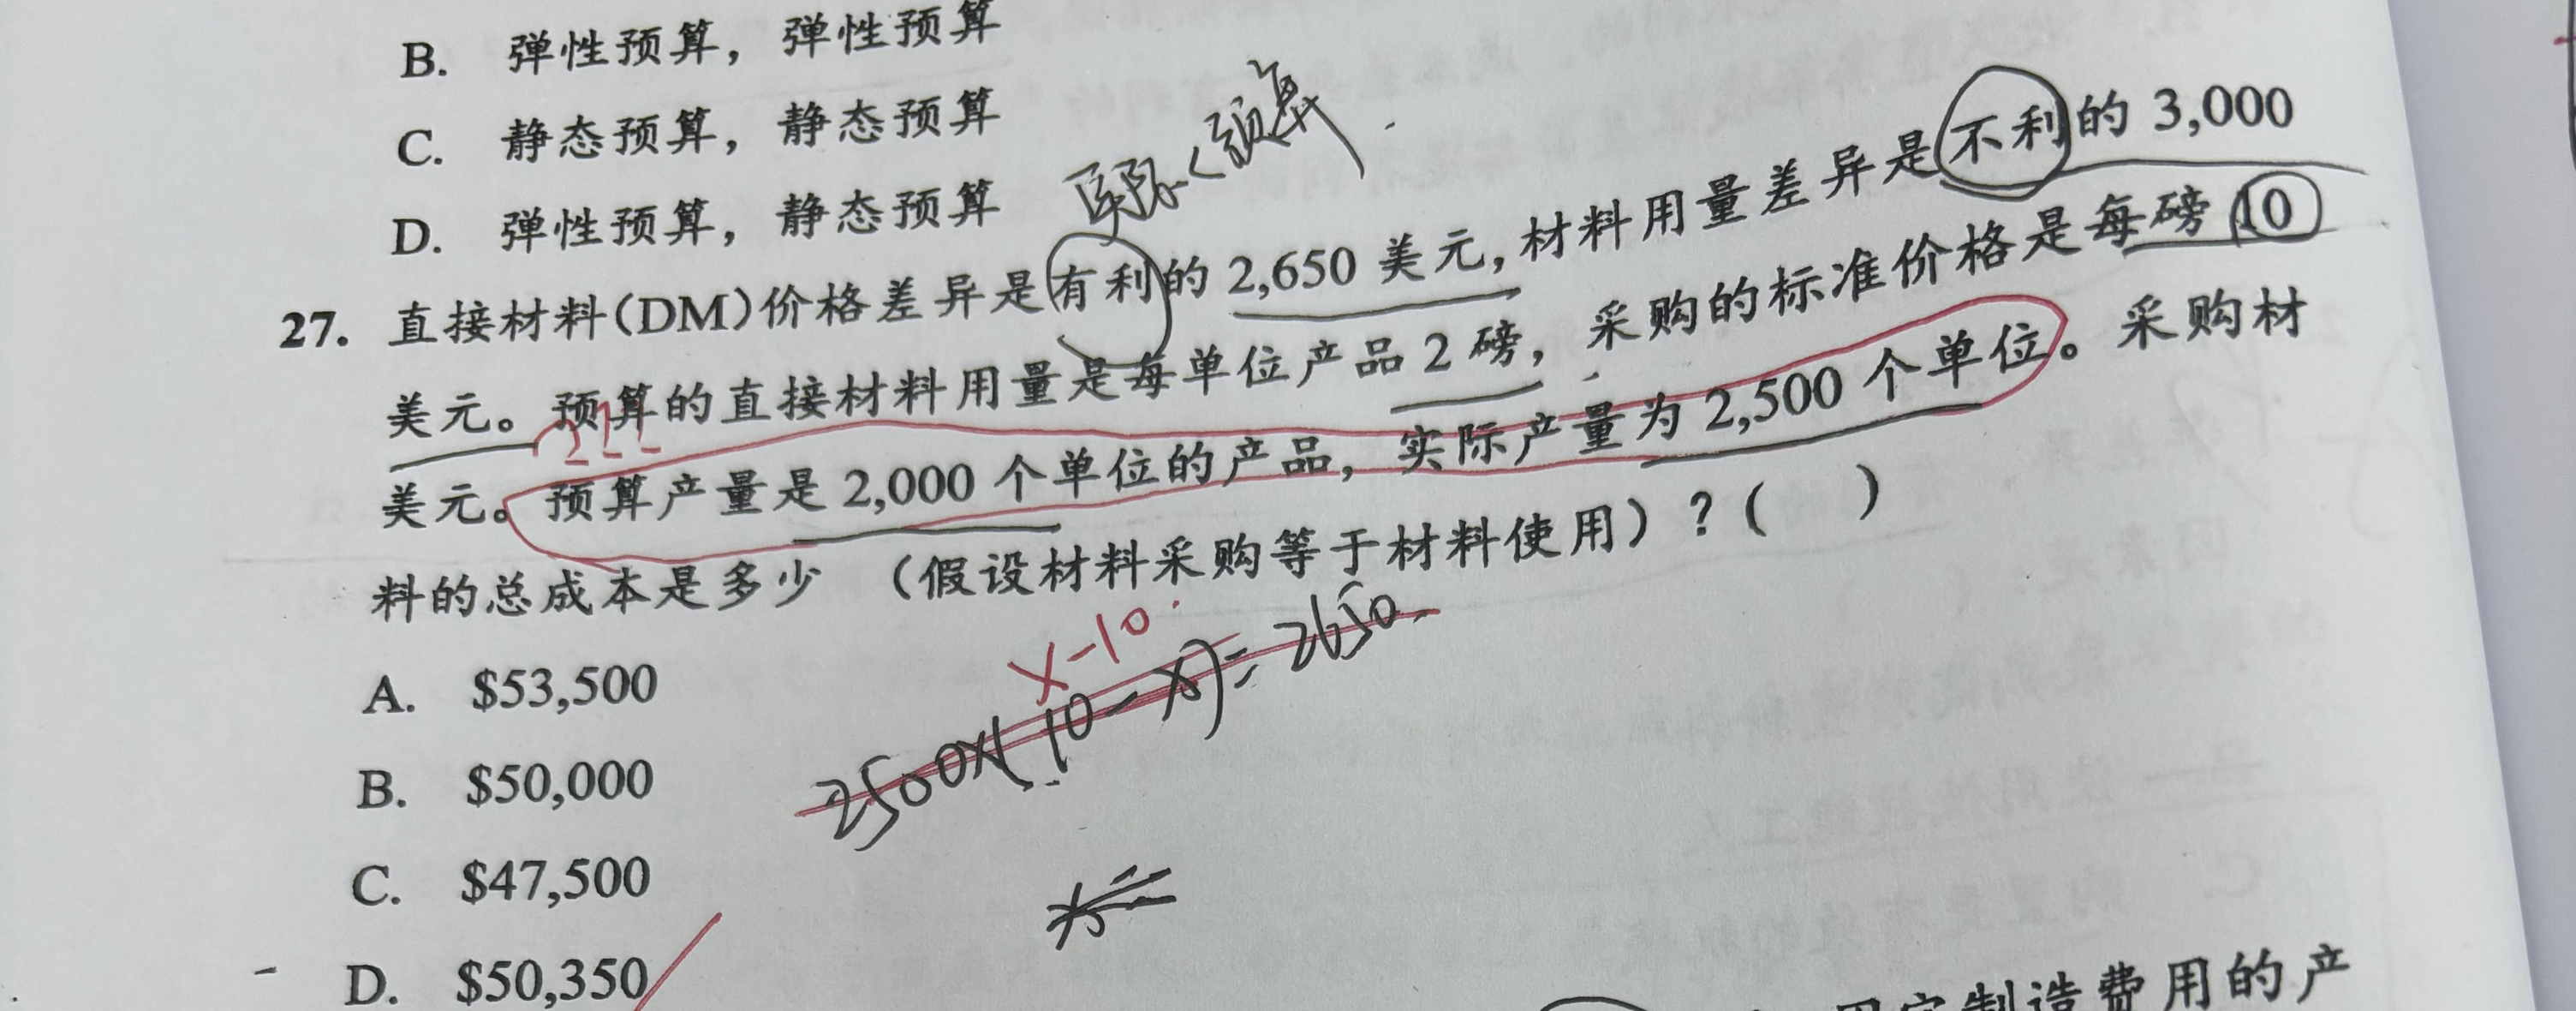 B. 弹性预算，弹性预算
C. 静态预算，静态预算
D. 弹性预算，静态预算
实际<预算
27. 直接材料(DM)价格差异是有利的 2,650 美元，材料用量差异是不利的 3,000
美元。预算的直接材料用量是每单位产品 2 磅，采购的标准价格是每磅 10
美元。预算产量是 2,000 个单位的产品，实际产量为 2,500 个单位。采购材
料的总成本是多少（假设材料采购等于材料使用）？（ ）
X-10
2500×(10-X)=2650
A. $53,500
B. $50,000
C. $47,500
D. $50,350
制造费用的产